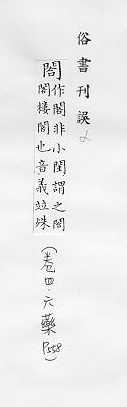 俗書刊誤
閣
作閤非小閨謂之閤
閣樓閣也音義竝殊
(卷四.六藥 P558)